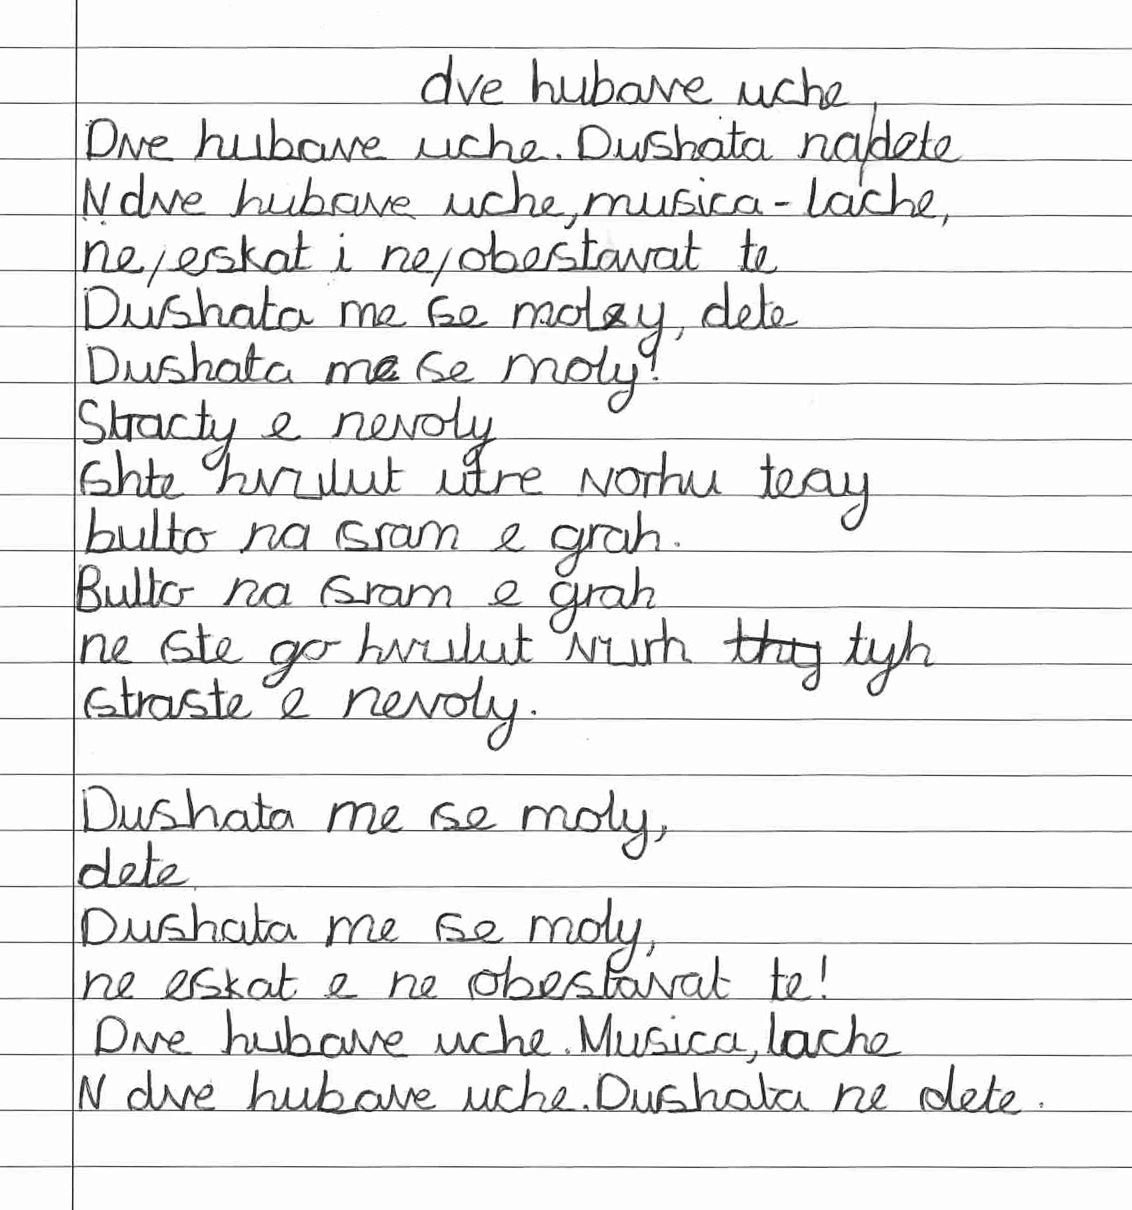 dve hubave uche
Dve hubave uche. Dushata na/dete
V dve hubave uche, musica - lache,
ne/eskat i ne/obestavat te
Dushata me se moly, dete
Dushata me se moly!
Stracty e nevoly
shte hvrulut utre vorhu teay
bulto na sram e grah.
Bulto na sram e grah
ne ste go hvrulut vurh thy tyh
straste e nevoly.
Dushata me se moly,
dete
Dushata me se moly,
ne eskat e ne obestavat te!
Dve hubave uche. Musica, lache
V dve hubave uche. Dushata ne dete.